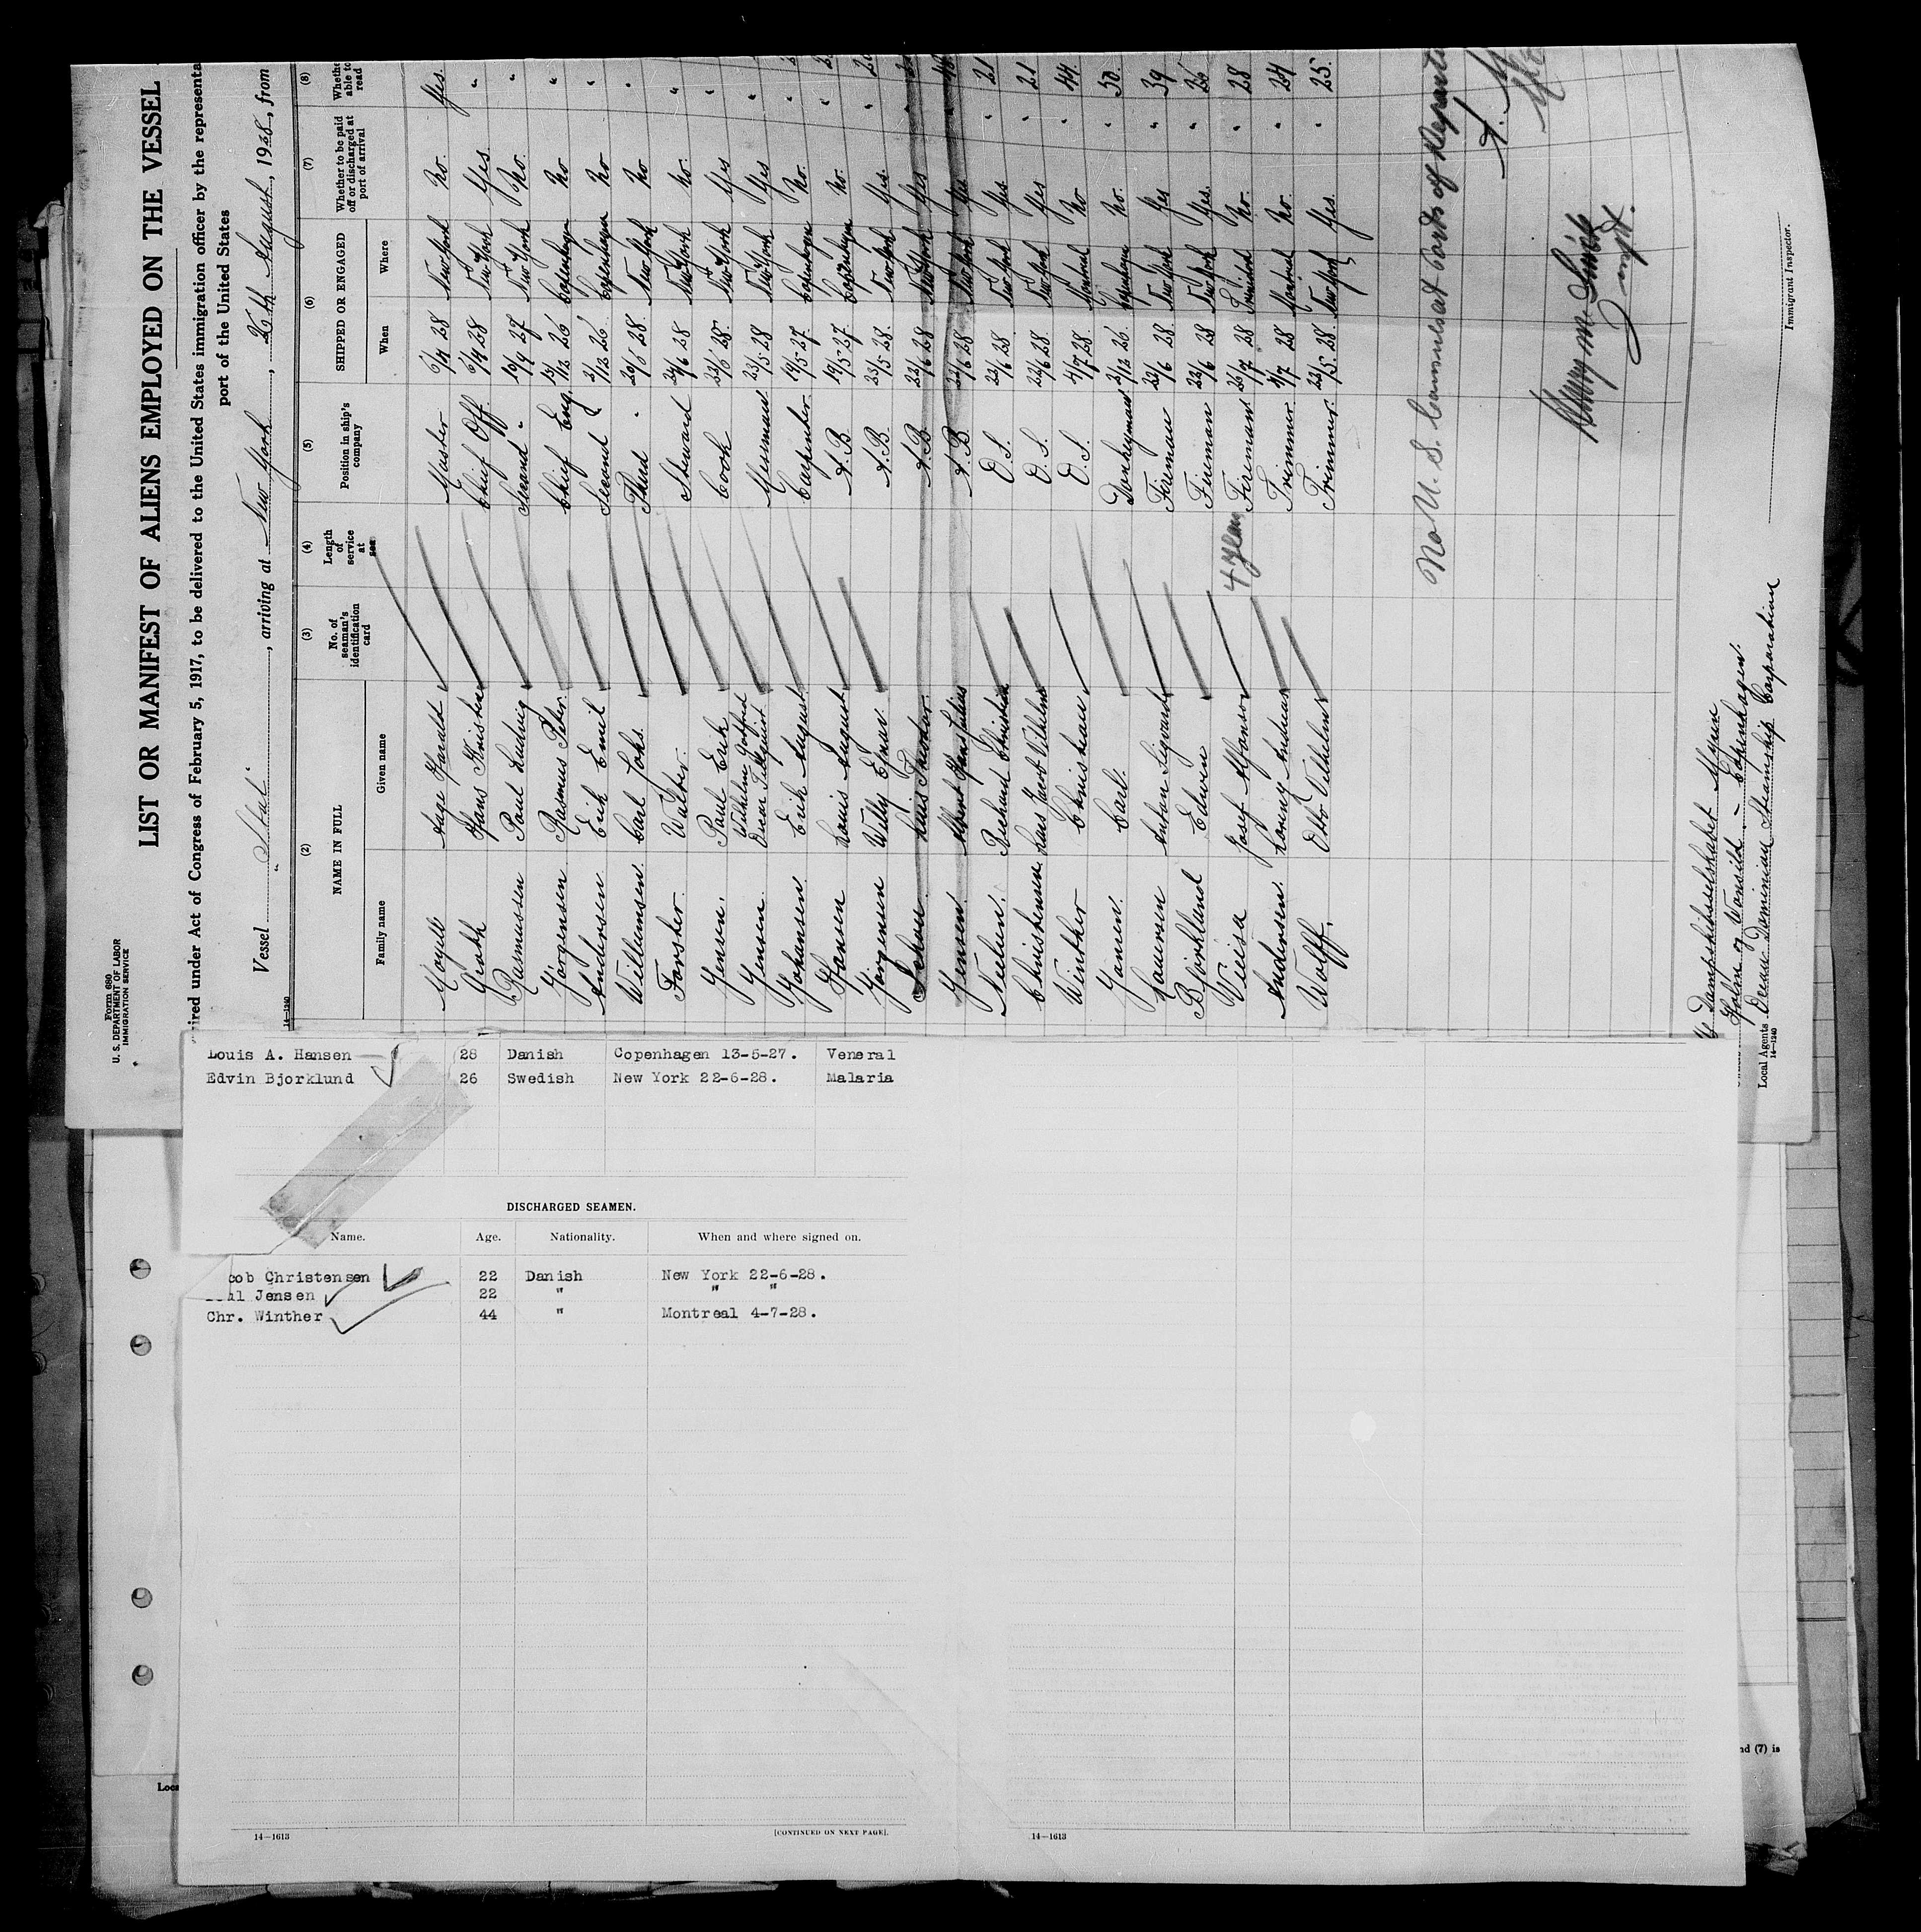 Form 680
U. S. DEPARTMENT OF LABOR
IMMIGRATION SERVICE
LIST OR MANIFEST OF ALIENS EMPLOYED ON THE VESSEL
ired under Act of Congress of February 5, 1917, to be delivered to the United States immigration officer by the representa
port of the United States
Vessel , arriving at New York , 26th August , 1928, from
14—1240
(2) (3) (4) (5) (6) (7) (8)
NAME IN FULL No. of seaman's identification card Length of service at sea Position in ship's company SHIPPED OR ENGAGED Whether to be paid off or discharged at port of arrival Whethe able to read
Family name Given name When Where
Aage Harald Master 6/4 28 New York No. Yes.
Hans Kristen Chief Off. 6/4 28 New York Yes. "
Rasmussen Paul Ludvig Second " 10/9 27 New York No. "
Jörgensen Rasmus Peter Chief Eng. 13/12 26 Copenhagen No "
Andersen Erik Emil Second " 2/12 26 Copenhagen No "
Willumsen Carl Johs. Third " 20/6 28 New York No "
Forster. Walter. Steward 24/6 28 New York No. "
Jensen. Paul Erik Cook 22/6 28. New York Yes "
Jensen. Messman 23/5 28 New York Yes "
Johansen. Erik August Carpenter 19/5 27 Copenhagen No. "
Hansen Louis August A.B. 19/5 27. Copenhagen No. "
Jörgensen Willy Ejnar. A.B. 23/5 28. New York Yes. "
A.B. 22/6 28 New York Yes "
Jensen. A.B. 22/6 28 New York Yes "
Nielsen. Richard Christian O.S. 22/6 28. New York Yes " 21
Christensen O.S. 22/6 28 New York Yes " 21
Winther Christian O.S. 4/7 28. Montreal No " 44.
Carl. Donkeyman 2/12 26. Copenhagen No. " 50.
Laursen Anton Sigvard Fireman 22/6 28 New York Yes " 39
Björklund Edwin Fireman 22/6 28 New York Yes. " 26
Vieisa Josef Afonso 4 years Fireman 28 Trinidad No. " 28
Andersen. Andreas Trimmer. 4/7 28 Montreal No. " 24
Wolff. Otto Vilhelm Trimmer. 22/5 28. New York Yes. " 25.
No U. S. Consulest Ports of Departu
Immigrant Inspector.
Dampskibsselskabet Myren
Holm og Wonsild. – Copenhagen.
Local Agents Ocean Dominion Steamship Corporation
14—1240
Louis A. Hansen 28 Danish Copenhagen 13-5-27. Veneral
Edvin Bjorklund 26 Swedish New York 22-6-28. Malaria
DISCHARGED SEAMEN.
Name. Age. Nationality. When and where signed on.
cob Christensen 22 Danish New York 22-6-28.
Jensen 22 " " "
Chr. Winther 44 " Montreal 4-7-28.
nd (7) is
Loca
14—1613 [CONTINUED ON NEXT PAGE]. 14—1613